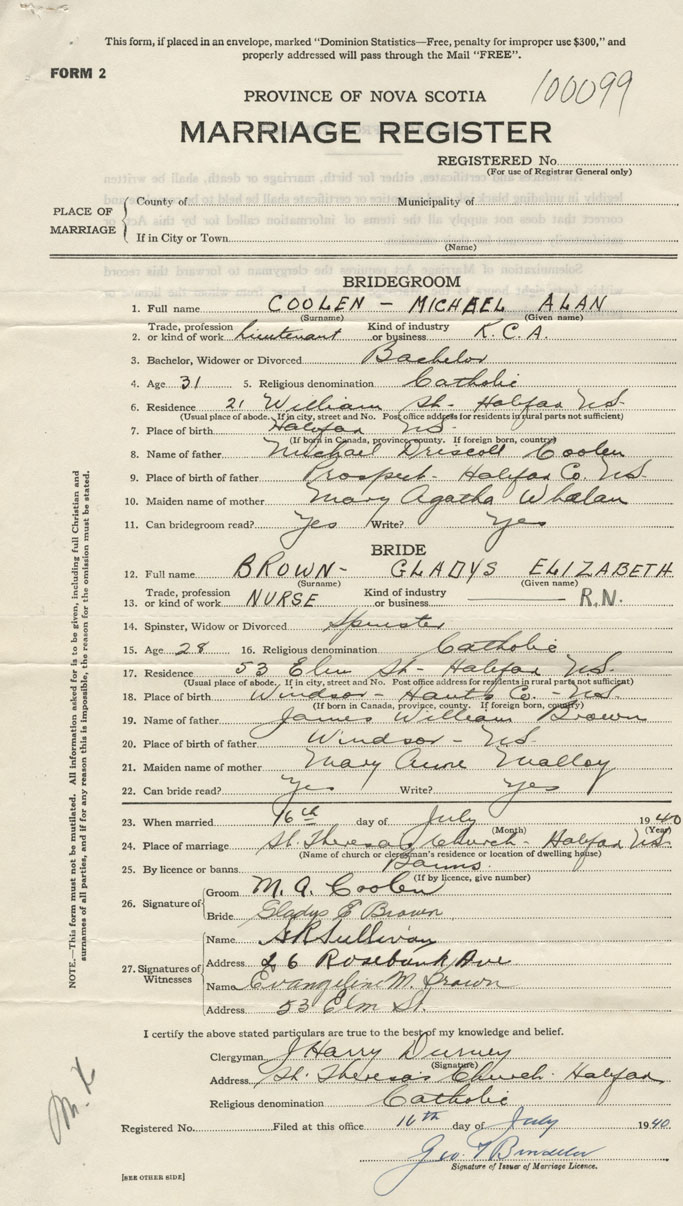 This form, if placed in an envelope, marked "Dominion Statistics—Free, penalty for improper use $300," and
properly addressed will pass through the Mail "FREE".
FORM 2
100099
PROVINCE OF NOVA SCOTIA
MARRIAGE REGISTER
REGISTERED No.
(For use of Registrar General only)
PLACE OF MARRIAGE
County of Municipality of
If in City or Town
(Name)
BRIDEGROOM
1. Full name COOLEN - MICHAEL ALAN
(Surname) (Given name)
2. Trade, profession or kind of work Lieutenant Kind of industry or business R.C.A.
3. Bachelor, Widower or Divorced Bachelor
4. Age 31 5. Religious denomination Catholic
6. Residence 21 William St- Halifax NS-
(Usual place of abode. If in city, street and No. Post office address for residents in rural parts not sufficient)
7. Place of birth Halifax NS-
(If born in Canada, province, county. If foreign born, country)
8. Name of father Michael Driscoll Coolen
9. Place of birth of father Prospect- Halifax Co. NS
10. Maiden name of mother Mary Agatha Whalan
11. Can bridegroom read? Yes Write? Yes
BRIDE
12. Full name BROWN- GLADYS ELIZABETH
(Surname) (Given name)
13. Trade, profession or kind of work NURSE Kind of industry or business — R.N.
14. Spinster, Widow or Divorced Spinster
15. Age 28 16. Religious denomination Catholic
17. Residence 53 Elm St- Halifax NS.
(Usual place of abode. If in city, street and No. Post office address for residents in rural parts not sufficient)
18. Place of birth Windsor- Hants Co. - NS.
(If born in Canada, province, county. If foreign born, country)
19. Name of father James William Brown
20. Place of birth of father Windsor- NS-
21. Maiden name of mother Mary Anne Malloy
22. Can bride read? Yes Write? Yes
23. When married 16th day of July 1940
(Month) (Year)
24. Place of marriage St. Theresa's Church- Halifax NS-
(Name of church or clergyman's residence or location of dwelling house)
25. By licence or banns Banns
(If by licence, give number)
26. Signature of
Groom M. A. Coolen
Bride Gladys E Brown
27. Signatures of Witnesses
Name Sullivan
Address 26 Rosebank Ave
Name Evangeline M. Brown
Address 53 Elm St.
I certify the above stated particulars are true to the best of my knowledge and belief.
Clergyman J Harry Durney
(Signature)
Address St. Theresa's Church- Halifax
Religious denomination Catholic
Registered No. Filed at this office 16th day of July 1940.
Geo
Signature of Issuer of Marriage Licence.
[SEE OTHER SIDE]
NOTE.—This form must not be mutilated. All information asked for is to be given, including full Christian and
surnames of all parties, and if for any reason this is impossible, the reason for the omission must be stated.